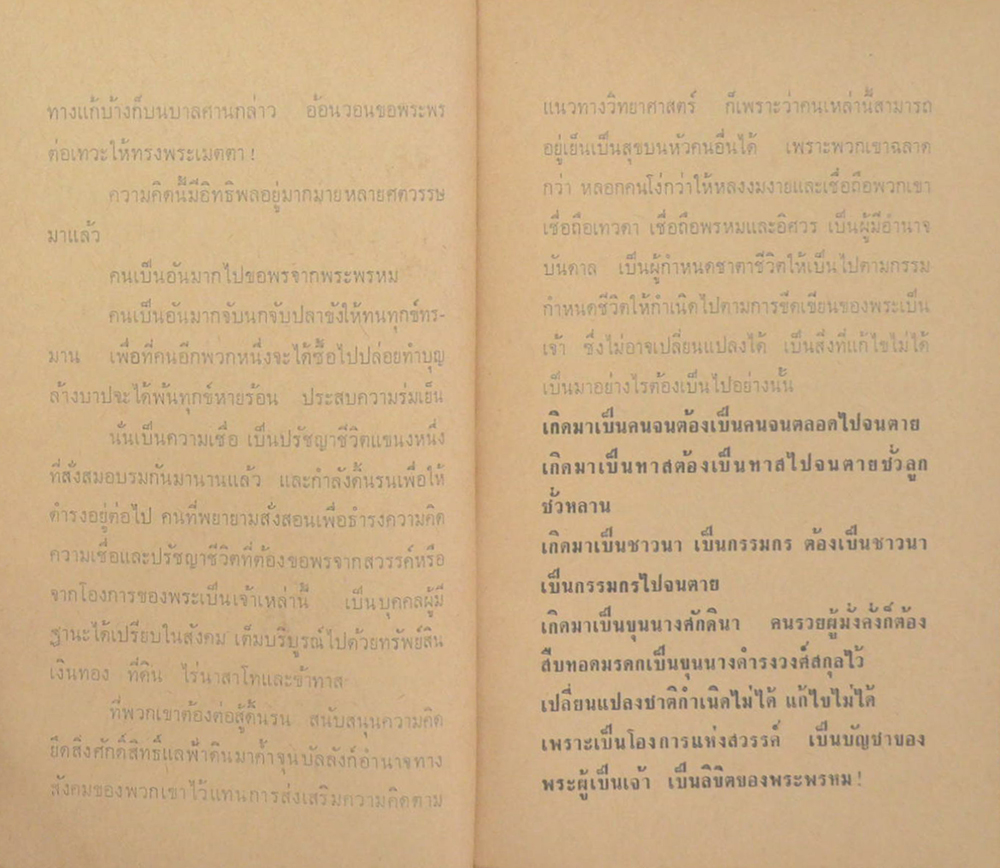 ทางแก้บ้างก็บนบาลศานกล่าว อ้อนวอนขอพระพร
ต่อเทวะให้ทรงพระเมตตา!
ความคิดนี้มีอิทธิพลอยู่มากมายหลายศตวรรษ
มาแล้ว
คนเป็นอันมากไปขอพรจากพระพรหม
คนเป็นอันมากจับนกจับปลาขังให้ทนทุกข์ทร-
มาน เพื่อที่คนอีกพวกหนึ่งจะได้ซื้อไปปล่อยทำบุญ
ล้างบาปจะได้พ้นทุกข์หายร้อน ประสบความร่มเย็น
นั่นเป็นความเชื่อ เป็นปรัชญาชีวิตแขนงหนึ่ง
ที่สั่งสมอบรมกันมานานแล้ว และกำลังดิ้นรนเพื่อให้
ดำรงอยู่ต่อไป คนที่พยายามสั่งสอนเพื่อธำรงความคิด
ความเชื่อและปรัชญาชีวิตที่ต้องขอพรจากสวรรค์หรือ
จากโองการของพระเป็นเจ้าเหล่านี้ เป็นบุคคลผู้มี
ฐานะได้เปรียบในสังคม เต็มบริบูรณ์ไปด้วยทรัพย์สิน
เงินทอง ที่ดิน ไร่นาสาโทและข้าทาส
ที่พวกเขาต้องต่อสู้ดิ้นรน สนับสนุนความคิด
ยึดสิ่งศักดิ์สิทธิ์แลฟ้าดินมาค้ำจุนบัลลังก์อำนาจทาง
สังคมของพวกเขาไว้แทนการส่งเสริมความคิดตาม
แนวทางวิทยาศาสตร์ ก็เพราะว่าคนเหล่านี้สามารถ
อยู่เย็นเป็นสุขบนหัวคนอื่นได้ เพราะพวกเขาฉลาด
กว่า หลอกคนโง่กว่าให้หลงงมงายและเชื่อถือพวกเขา
เชื่อถือเทวดา เชื่อถือพรหมและอิศวร เป็นผู้มีอำนาจ
บันดาล เป็นผู้กำหนดชาตาชีวิตให้เป็นไปตามกรรม
กำหนดชีวิตให้กำเนิดไปตามการขีดเขียนของพระเป็น
เจ้า ซึ่งไม่อาจเปลี่ยนแปลงได้ เป็นสิ่งที่แก้ไขไม่ได้
เป็นมาอย่างไรต้องเป็นไปอย่างนั้น
เกิดมาเป็นคนจนต้องเป็นคนจนตลอดไปจนตาย
เกิดมาเป็นทาสต้องเป็นทาสไปจนตายชั่วลูก
ชั่วหลาน
เกิดมาเป็นชาวนา เป็นกรรมกร ต้องเป็นชาวนา
เป็นกรรมกรไปจนตาย
เกิดมาเป็นขุนนางศักดินา คนรวยผู้มั่งคั่งก็ต้อง
สืบทอดมรดกเป็นขุนนางดำรงวงศ์สกุลไว้
เปลี่ยนแปลงชาติกำเนิดไม่ได้ แก้ไขไม่ได้
เพราะเป็นโองการแห่งสวรรค์ เป็นบัญชาของ
พระผู้เป็นเจ้า เป็นลิขิตของพระพรหม!